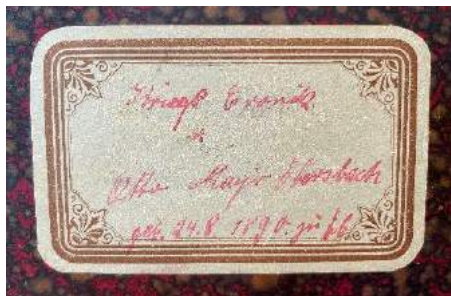 Kriegs Cronik
v.
Otto Mayer Ebersbach
geb. 24.8 1890. zu Eb.